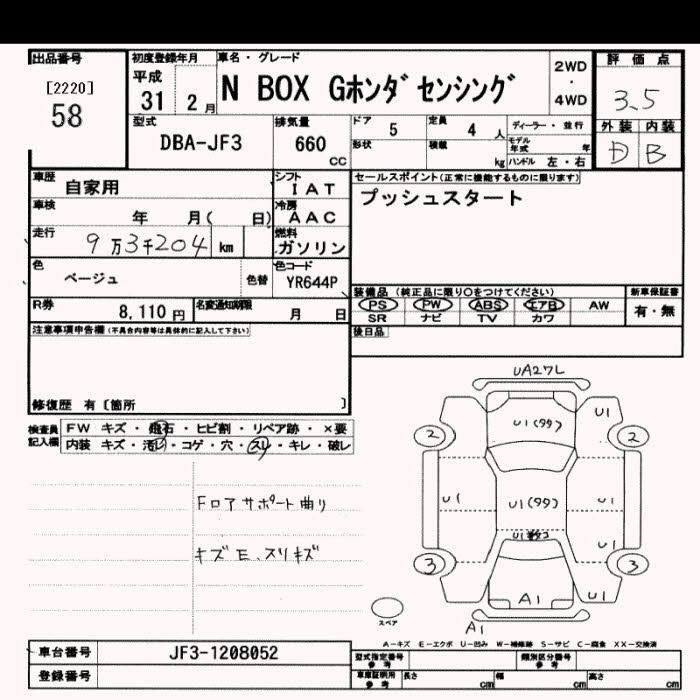 出品番号
[2220]
58
初度登録年月
平成
31 2月
車名・グレード
N BOX Gホンダセンシング
2WD
・
4WD
評価点
3.5
外装 内装
D B
型式
DBA-JF3
排気量
660
CC
ドア
5
定員
4 人
ディーラー・並行
形状
積載
kg
モデル年式 年
ハンドル 左・右
車歴
自家用
シフト
IAT
車検
年 月( 日)
冷房
AAC
走行
9万3千204 km
燃料
ガソリン
色
ベージュ
色替
色コード
YR644P
R券
8,110 円
名変通知期限
月 日
セールスポイント(正常に機能するものに限ります)
プッシュスタート
装備品(純正品に限り○をつけてください)
PS PW ABS エアB AW
SR ナビ TV カワ
新車保証書
有・無
後日品
注意事項申告欄(不具合内容等は具体的に記入して下さい)
修復歴 有〔箇所 〕
検査員記入欄
FW キズ・飛石・ヒビ割・リペア跡・×要
内装 キズ・汚レ・コゲ・穴・スレ・キレ・破レ
Fロアサポート曲り
キズE、スリキズ
UA27L
U1(99)
U1
2 2
U1 U1(99) U1
U1
3 3
A1 U1
A1
スペア
A－キズ E－エクボ U－凹み W－補修跡 S－サビ C－腐食 XX－交換済
車台番号
JF3-1208052
登録番号
型式指定番号
参考
類別区分番号
参考
車庫証明用
参考
長さ cm 幅 cm 高さ cm